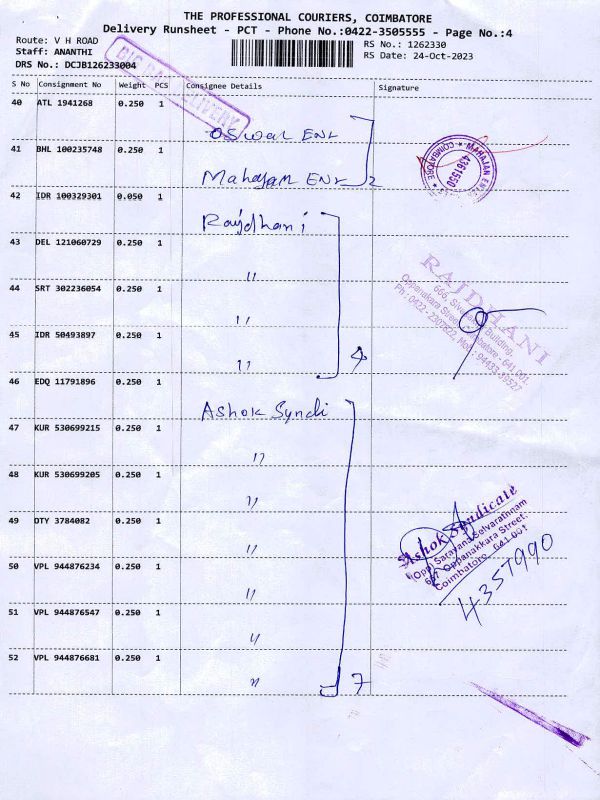 THE PROFESSIONAL COURIERS, COIMBATORE
Delivery Runsheet - PCT - Phone No.:0422-3505555 - Page No.:4
Route: V H ROAD
Staff: ANANTHI
DRS No.: DCJB126233004
RS No.: 1262330
RS Date: 24-Oct-2023
S No Consignment No Weight PCS Consignee Details Signature
40 ATL 1941268 0.250 1 Oswal Ent
41 BHL 100235748 0.250 1 Mahajan Ent 2
MAHAJAN
4361550
COIMBATORE
42 IDR 100329301 0.050 1 Rajdhani
43 DEL 121060729 0.250 1 "
44 SRT 302236054 0.250 1 "
45 IDR 50493897 0.250 1 " 4
RAJDHANI
666, Building,
Oppanakara Street, Coimbatore - 641 001.
Ph : 0422 - 2307822, Mob : 94433-39527
46 EDQ 11791896 0.250 1 Ashok Syndi
47 KUR 530699215 0.250 1 "
48 KUR 530699205 0.250 1 "
49 OTY 3784082 0.250 1 "
50 VPL 944876234 0.250 1 "
51 VPL 944876547 0.250 1 "
52 VPL 944876681 0.250 1 " 7
Ashok Syndicate
(Opp) Sarayana Selvarathnam
657 Oppanakkara Street,
Coimbatore - 641 001
4357990